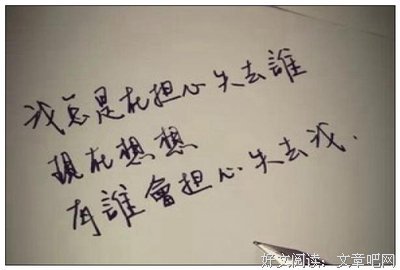 我总是在担心失去誰
現在想想
有誰會担心失去我.
好文阅读：文章吧网